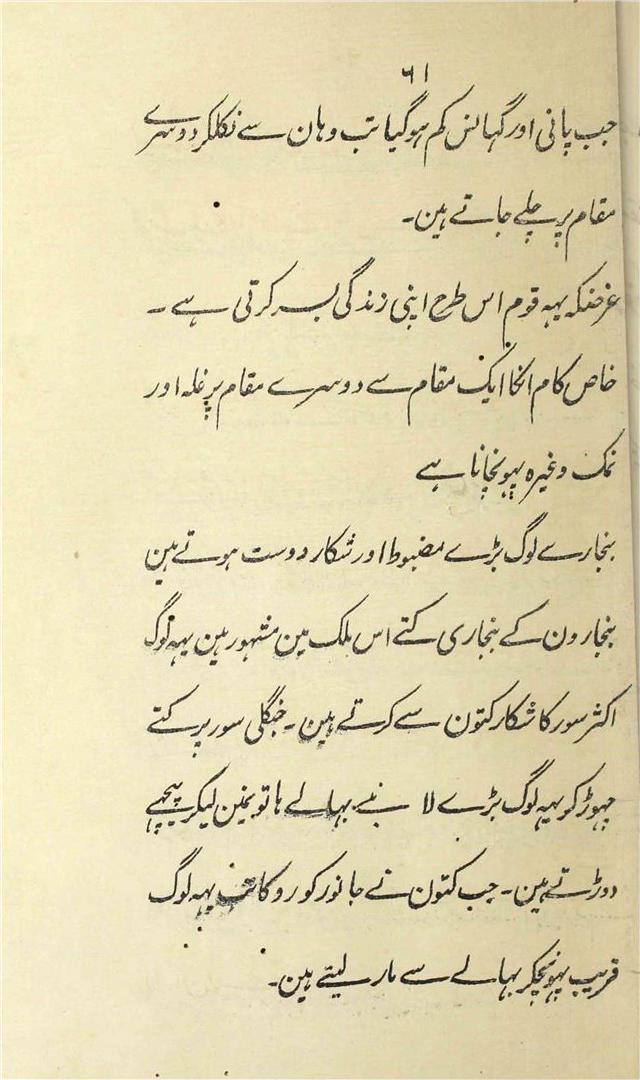 ۶۱
جب پانی اور گہانس کم ہوگیا تب وہان سے نکلکر دوسرے
مقام پر چلے جاتے ہین۔
غرضکہ یہہ قوم اس طرح اپنی زندگی بسر کرتی ہے ۔
خاص کام انکا ایک مقام سے دوسرے مقام پر غلہ اور
نمک وغیرہ پہونچانا ہے
بنجارے لوگ بڑے مضبوط اور شکار دوست ہوتے ہین
بنجارون کے بنجاری کتے اس ملک مین مشہور ہین یہہ لوگ
اکثر سور کا شکار کتون سے کرتے ہین۔ جنگلی سور پر کتے
چہوڑ کر یہہ لوگ بڑے لانبے بہالے ہاتو نمین لیکر پیچہے
دوڑتے ہین۔ جب کتون نے جانور کو روکا تب یہہ لوگ
قریب پہونچکر بہالے سے مار لیتے ہین۔